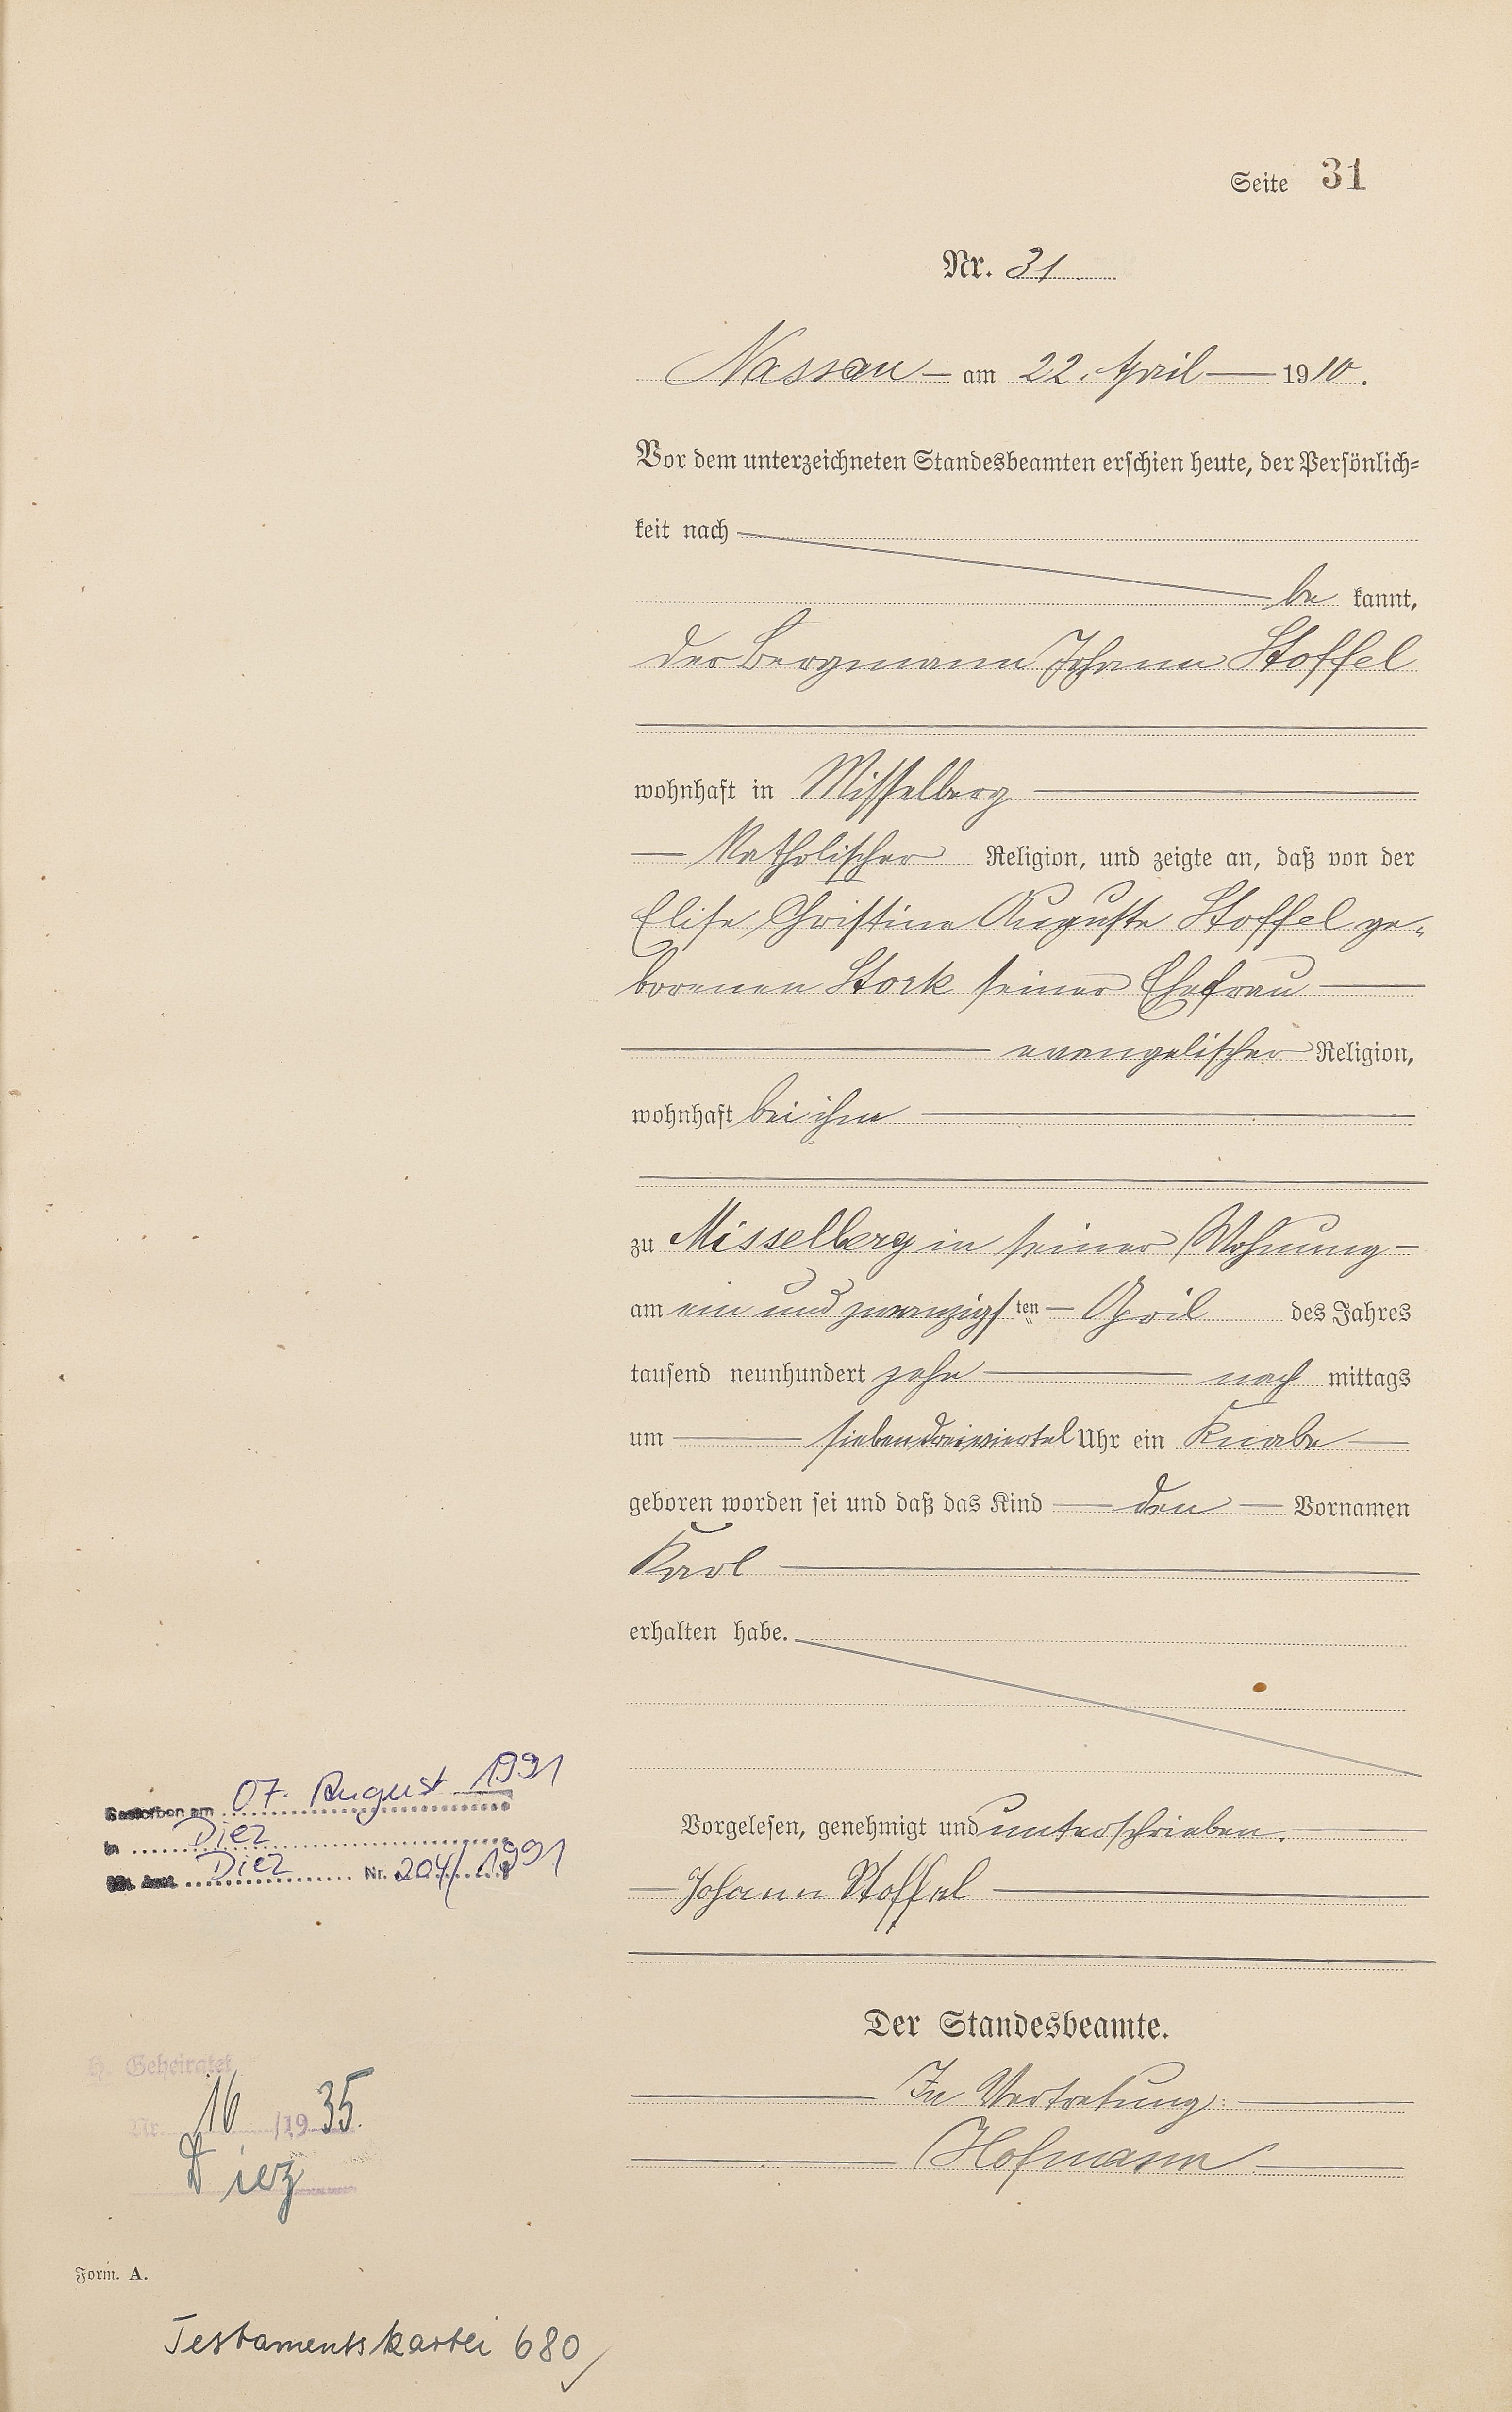 Seite 31
Nr. 31
Nassau am 22. April 1910.
Vor dem unterzeichneten Standesbeamten erschien heute, der Persönlich-
keit nach
be kannt,
der Bergmann Johann Stoffel
wohnhaft in Misselberg
katholischer Religion, und zeigte an, daß von der
Elise Christine Auguste Stoffel ge-
borenen Stork seiner Ehefrau
evangelischer Religion,
wohnhaft bei ihm
zu Misselberg in seiner Wohnung
am ein und zwanzigsten April des Jahres
tausend neunhundert zehn nach mittags
um siebendreiviertel Uhr ein Knabe
geboren worden sei und daß das Kind den Vornamen
Karl
erhalten habe.
Vorgelesen, genehmigt und unterschrieben.
Johann Stoffel
Der Standesbeamte.
In Vertretung:
Hofmann
Gestorben am 07. August 1991
in Diez
St. Amt Diez Nr. 204/1991
H. Geheiratet
Nr. 16 /1935.
Diez
Form. A.
Testamentskartei 680